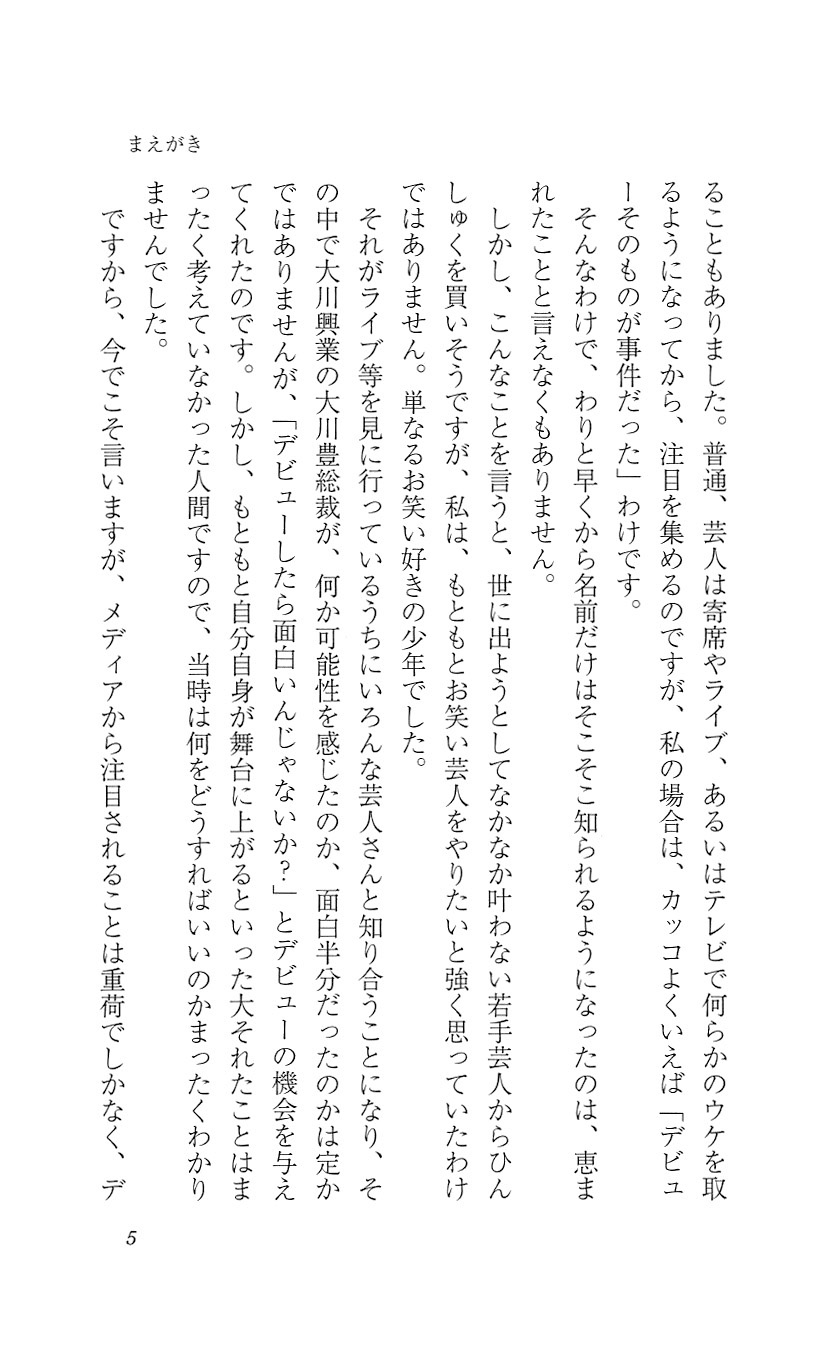 まえがき
ることもありました。普通、芸人は寄席やライブ、あるいはテレビで何らかのウケを取
るようになってから、注目を集めるのですが、私の場合は、カッコよくいえば「デビュ
ーそのものが事件だった」わけです。
　そんなわけで、わりと早くから名前だけはそこそこ知られるようになったのは、恵ま
れたことと言えなくもありません。
　しかし、こんなことを言うと、世に出ようとしてなかなか叶わない若手芸人からひん
しゅくを買いそうですが、私は、もともとお笑い芸人をやりたいと強く思っていたわけ
ではありません。単なるお笑い好きの少年でした。
　それがライブ等を見に行っているうちにいろんな芸人さんと知り合うことになり、そ
の中で大川興業の大川豊総裁が、何か可能性を感じたのか、面白半分だったのかは定か
ではありませんが、「デビューしたら面白いんじゃないか？」とデビューの機会を与え
てくれたのです。しかし、もともと自分自身が舞台に上がるといった大それたことはま
ったく考えていなかった人間ですので、当時は何をどうすればいいのかまったくわかり
ませんでした。
　ですから、今でこそ言いますが、メディアから注目されることは重荷でしかなく、デ
5